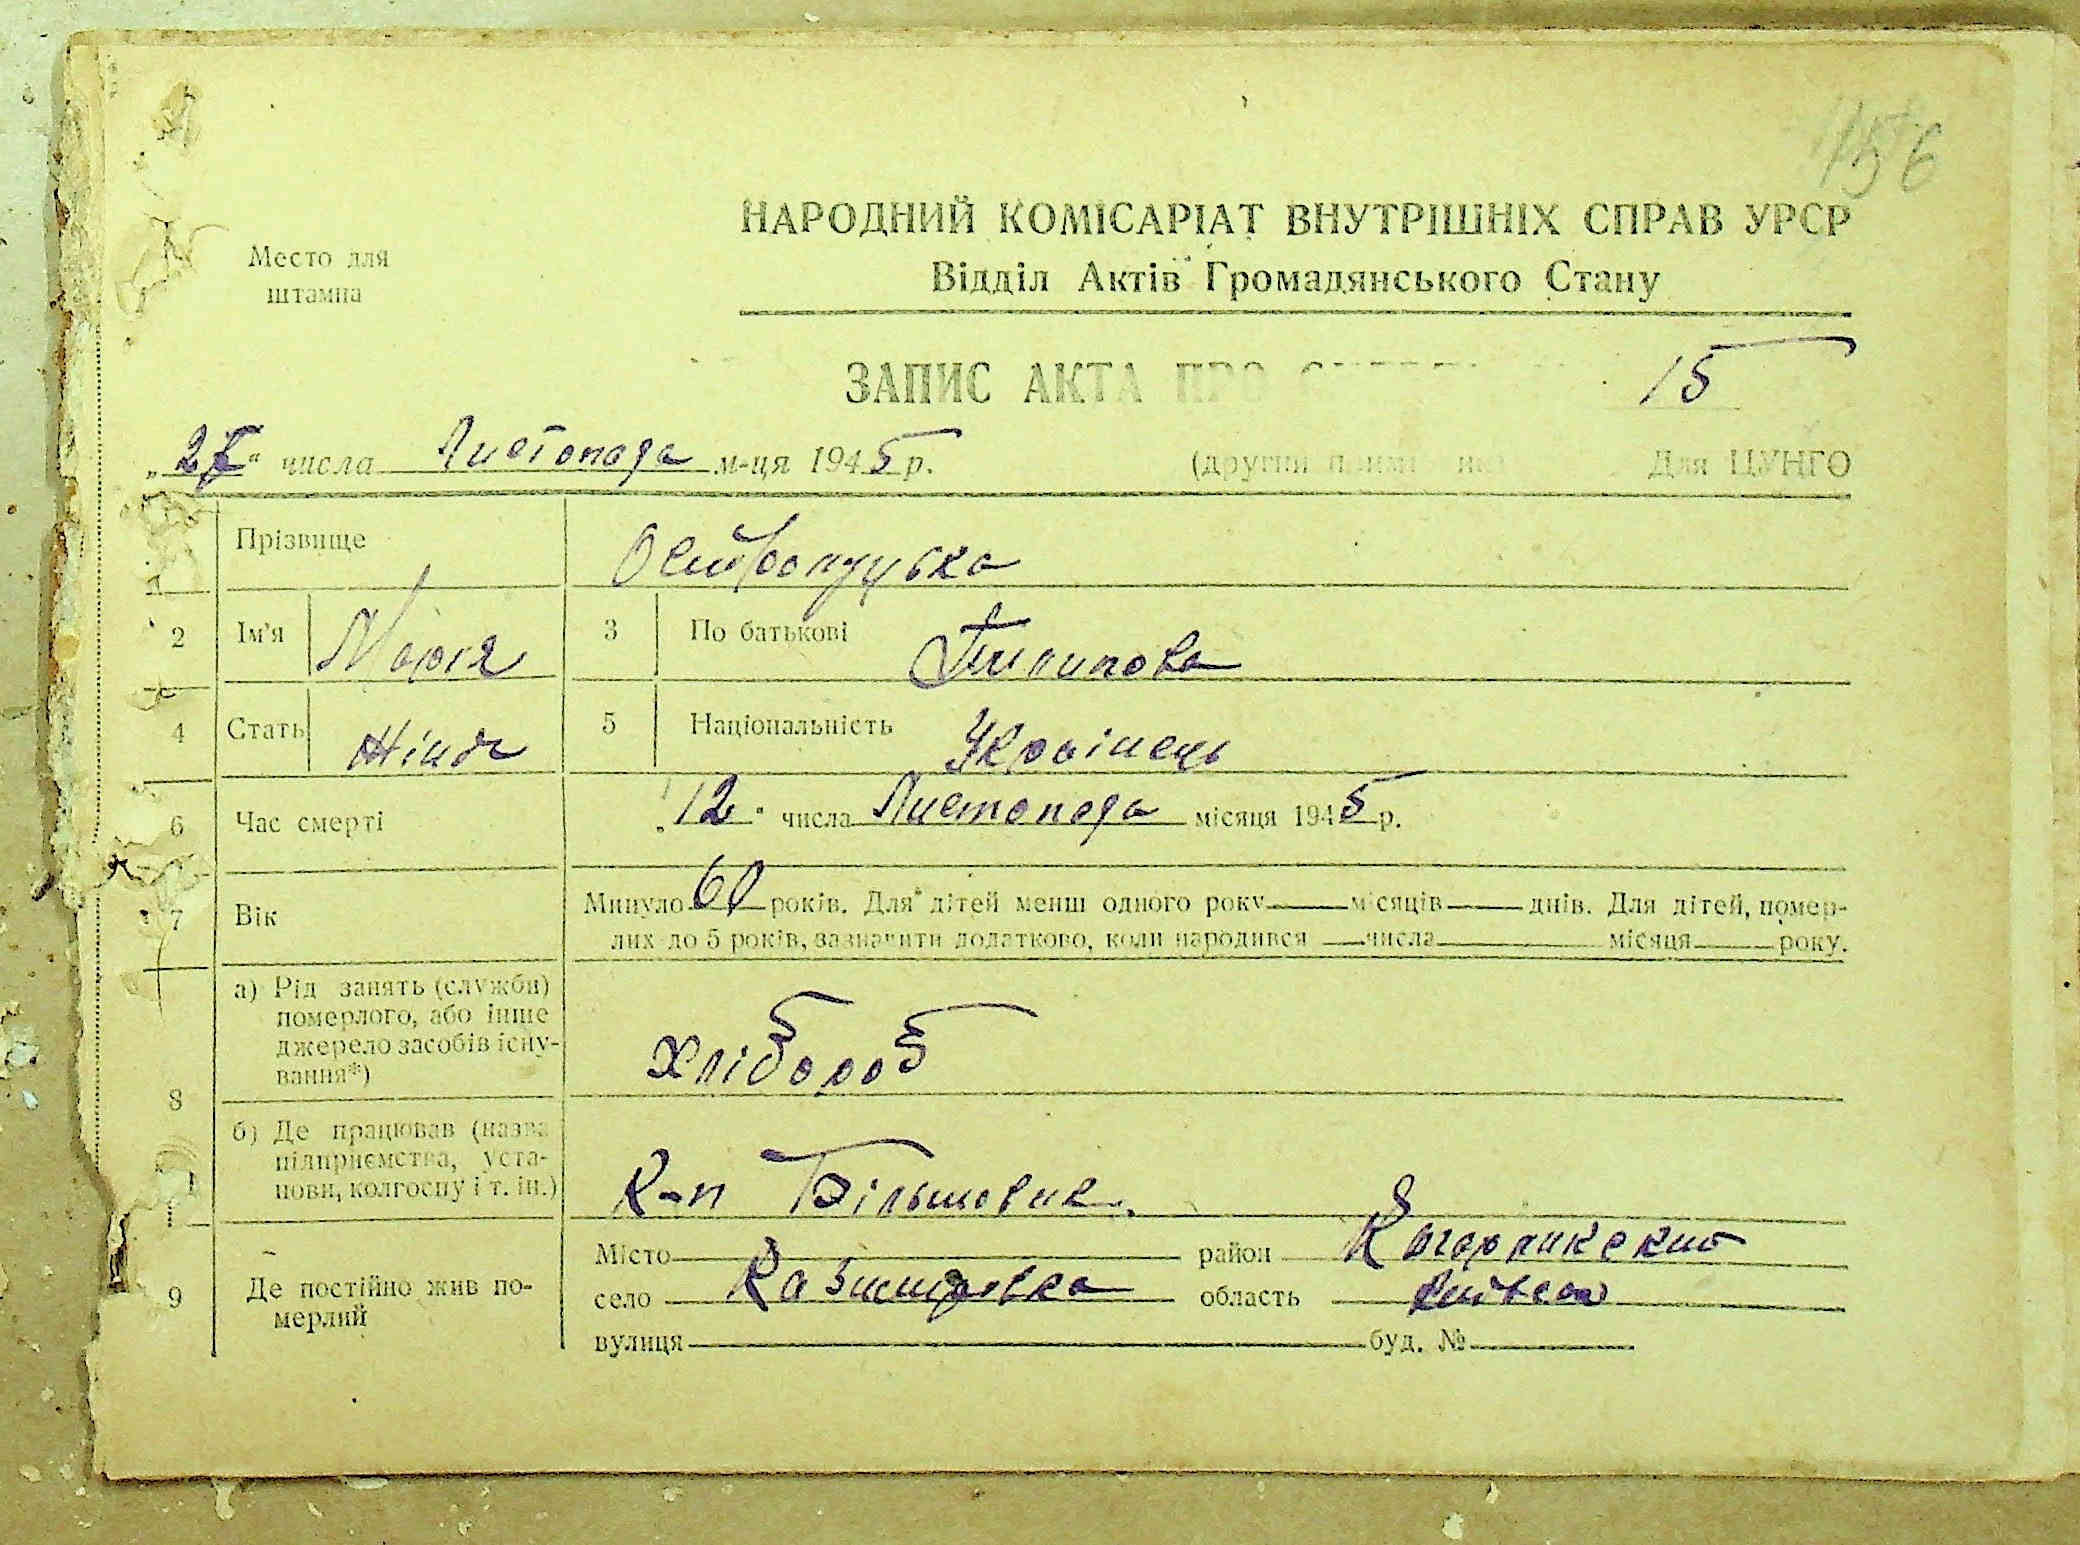 156
НАРОДНИЙ КОМІСАРІАТ ВНУТРІШНІХ СПРАВ УРСР
Место для
штампа
Відділ Актів Громадянського Стану
ЗАПИС АКТА ПРО 15
числа Листопада м-ця 1945 р. (другий Для ЦУНГО
1 Прізвище
2 Ім'я Марія 3 По батькові Пилипова
4 Стать Жіноч 5 Національність Українець
6 Час смерті „12“ числа Листопада місяця 1945 р.
7 Вік Минуло 60 років. Для дітей менш одного року місяців днів. Для дітей, помер-
лих до 5 років, зазначити додатково, коли народився числа місяця року.
8 а) Рід занять (служби)
померлого, або інше
джерело засобів існу-
вання*)
Хлібороб
б) Де працював (назва
підприємства, уста-
нови, колгоспу і т. ін.)
К-п Більшовик.
9 Де постійно жив по-
мерлий
Місто район Кагарликский
село область
вулиця буд. №